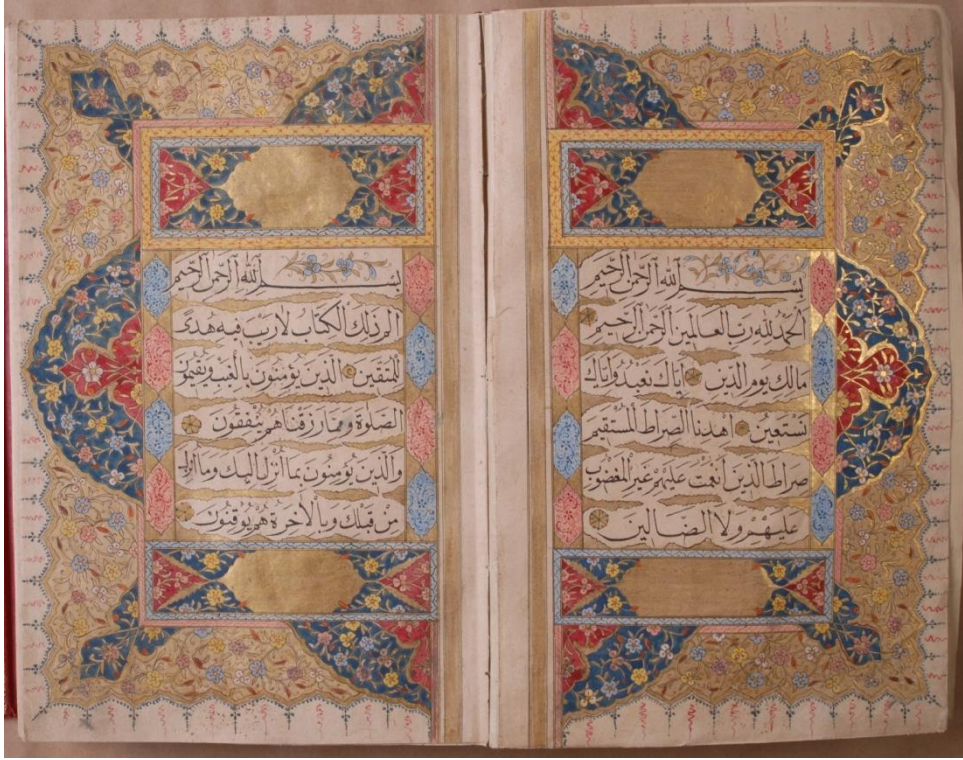 بسم الله الرحمن الرحيم
الحمد لله رب العالمين الرحمن الرحيم
مالك يوم الدين اياك نعبد واياك
نستعين اهدنا الصراط المستقيم
صراط الذين انعمت عليهم غير المغضوب
عليهم ولا الضالين
بسم الله الرحمن الرحيم
الم ذلك الكتاب لا ريب فيه هدى
للمتقين الذين يؤمنون بالغيب ويقيمون
الصلوة ومما رزقناهم ينفقون
والذين يؤمنون بما انزل اليك وما انزل
من قبلك وبالاخرة هم يوقنون